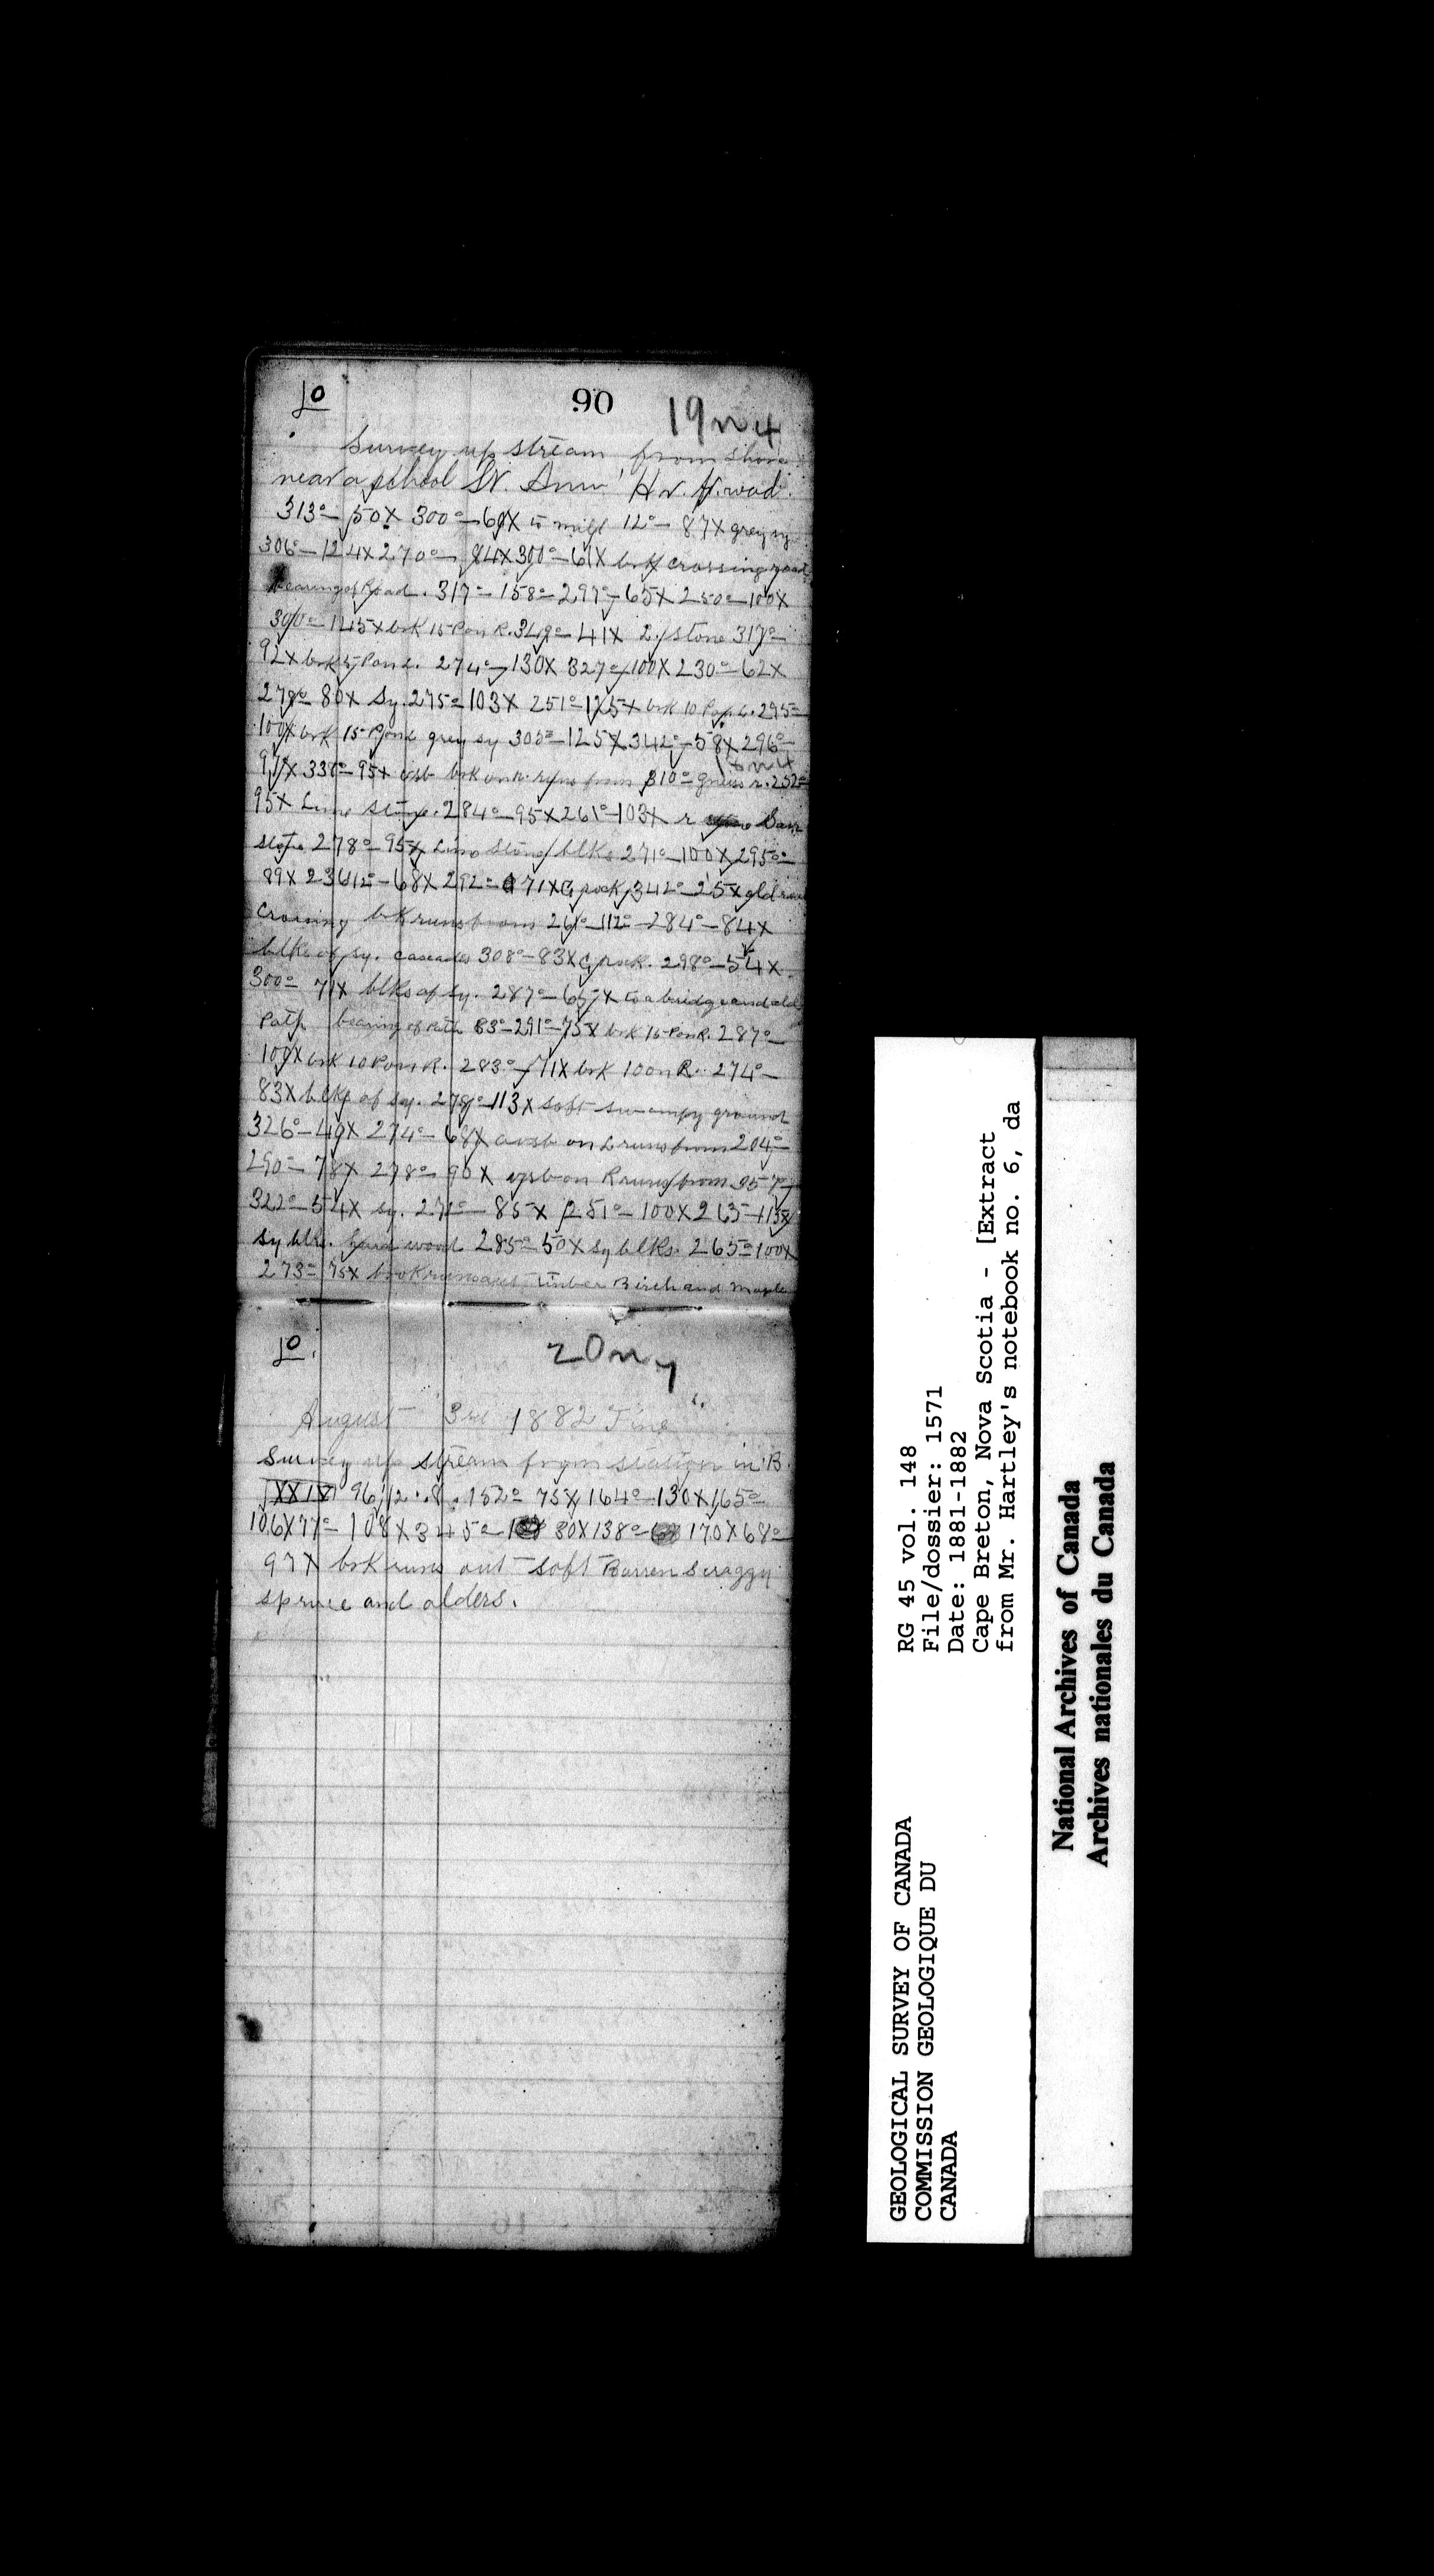 10
90
19 n 4
Survey up stream from shore
near a school St. Ann' Hr. H. wood.
313°- 50X 300°- 60X to mill 12°- 87X grey sy
306°- 124X 270°- 84X 300°- 61X brk crossing road
bearing of Road. 317°- 158°- 297°- 65X 250°- 100X
300°- 145X brk 15 P on R. 349°- 41X L. stone 317°-
92X brk 5 P on L. 274°- 130X 327°- 100X 230°- 62X
278°- 80X Sy. 275°- 103X 251°- 125X brk 10 P on L. 295°-
100X brk 15 P on L grey sy 305°- 125X 342°- 58X 296°-
97X 330°- 95X brk on R. runs from 310° gneiss r. 252°
95X Lime Stone. 284°- 95X 261°- 103X r Sam
Stone 278°- 95X Lime Stone blks 271°- 100X 295°-
89X 236 112°- 68X 292°- 71X G rock, 342°- 25X old road
Crossing brk runs from 261°- 112°- 284°- 84X
blks of sy. cascades 308°- 83X G rock. 298°- 54X
300°- 71X blks of sy. 287°- 65X to a bridge and old
Path bearing of Path 83°- 291°- 75X brk 15 P on R. 287°-
100X brk 10 P on R. 283°- 71X brk 10 on R. 274°-
83X blks of sy. 278°- 113X soft swampy ground
326°- 49X 274°- 68X on L runs from 204°-
290°- 78X 278°- 90X on R runs from
322°- 54X sy. 271°- 85X 251°- 100X 265°- 113X
Sy blks. hard wood 285°- 50X Sy blks. 265°- 100X
273°- 75X brok runs out timber Birch and Maple
10.
20 n 7
August 3rd 1882 Fine
Survey up stream from station in B.
XXIV 96/12.8. 152°- 75X 164°- 130X 165°-
106X 77°- 108X 345°- 30X 138°- 170X 68°-
97X brk runs out soft Barren Scraggy
spruce and alders.
RG 45 vol. 148
File/dossier: 1571
Date: 1881-1882
Cape Breton, Nova Scotia - [Extract
from Mr. Hartley's notebook no. 6, da
GEOLOGICAL SURVEY OF CANADA
COMMISSION GEOLOGIQUE DU
CANADA
National Archives of Canada
Archives nationales du Canada